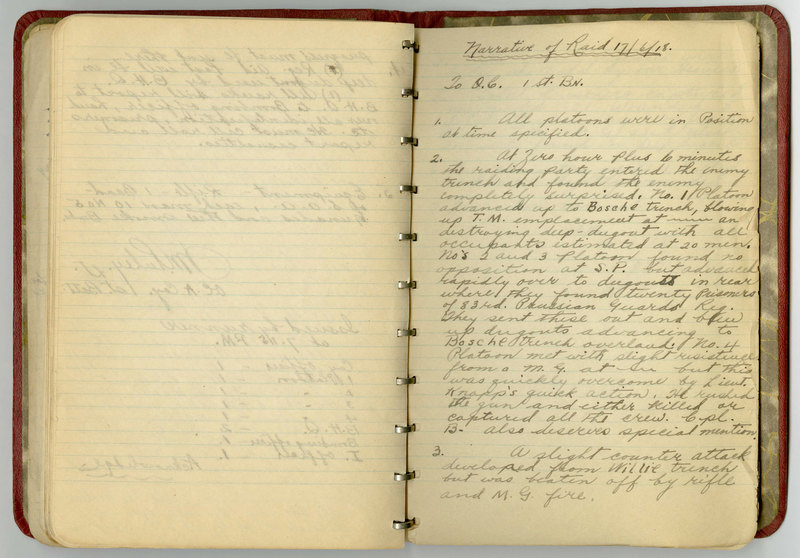 Narrative of Raid 17/6/18.
To O.C. 1st. Bn.
1. All platoons were in Position
at time specified.
2. At Zero hour plus 6 minutes
the raiding party entered the enemy
trench and found the enemy
completly surprised. No. 1 Platoon
advanced up to Bosche trench, blowing
up T.M. emplacement at an
distroying deep-dugout with all
occupants estimated at 20 men.
No's 2 and 3 Platoon found no
opposition at S.P. but advanced
rapidly over to dugouts in rear
where they found twenty Prisoners
of 83rd. Prussian Guards Reg.
They sent these out and blew
up dugouts advancing to
Bosche trench overland. No. 4
Platoon met with slight resistance
from a M.G. at but this
was quickly overcome by Lieut.
Knapp's quick action. He rushed
the gun and either killed or
captured all the crew. Cpl.
B- also deserves special mention.
3. A slight counter attack
developed from Willie trench
but was beaten off by rifle
and M.G. fire.